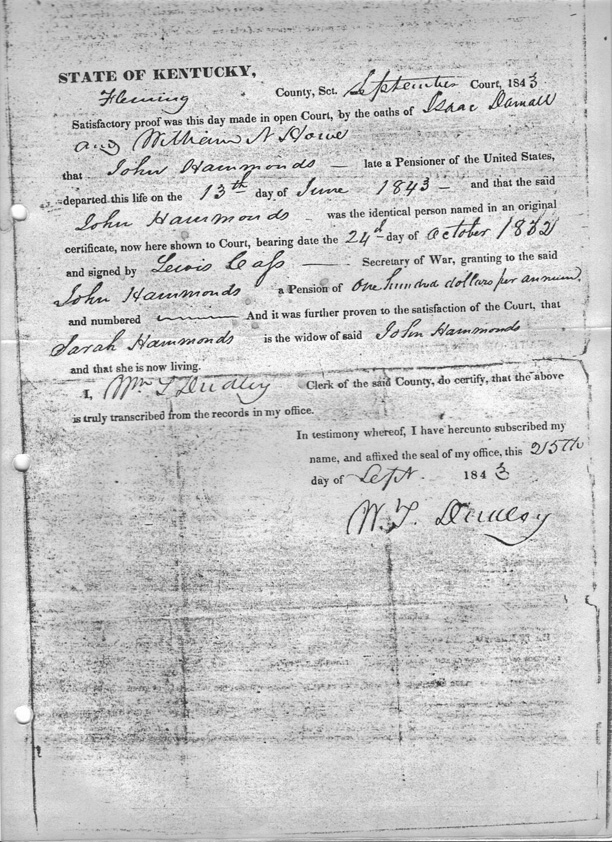 STATE OF KENTUCKY,
Fleming County, Sct. September Court, 1843
Satisfactory proof was this day made in open Court, by the oaths of Isaac Darnall
and William N Howe
that John Hammonds — late a Pensioner of the United States,
departed this life on the 13th day of June 1843 – and that the said
John Hammonds – was the identical person named in an original
certificate, now here shown to Court, bearing date the 24th day of October 1832
and signed by Lewis Cass — Secretary of War, granting to the said
John Hammonds a Pension of One hundred dollars per annum,
and numbered — And it was further proven to the satisfaction of the Court, that
Sarah Hammonds is the widow of said John Hammonds
and that she is now living.
I, Wm T Dudley Clerk of the said County, do certify, that the above
is truly transcribed from the records in my office.
In testimony whereof, I have hereunto subscribed my
name, and affixed the seal of my office, this 25th
day of Sept. 1843
W. T. Dudley